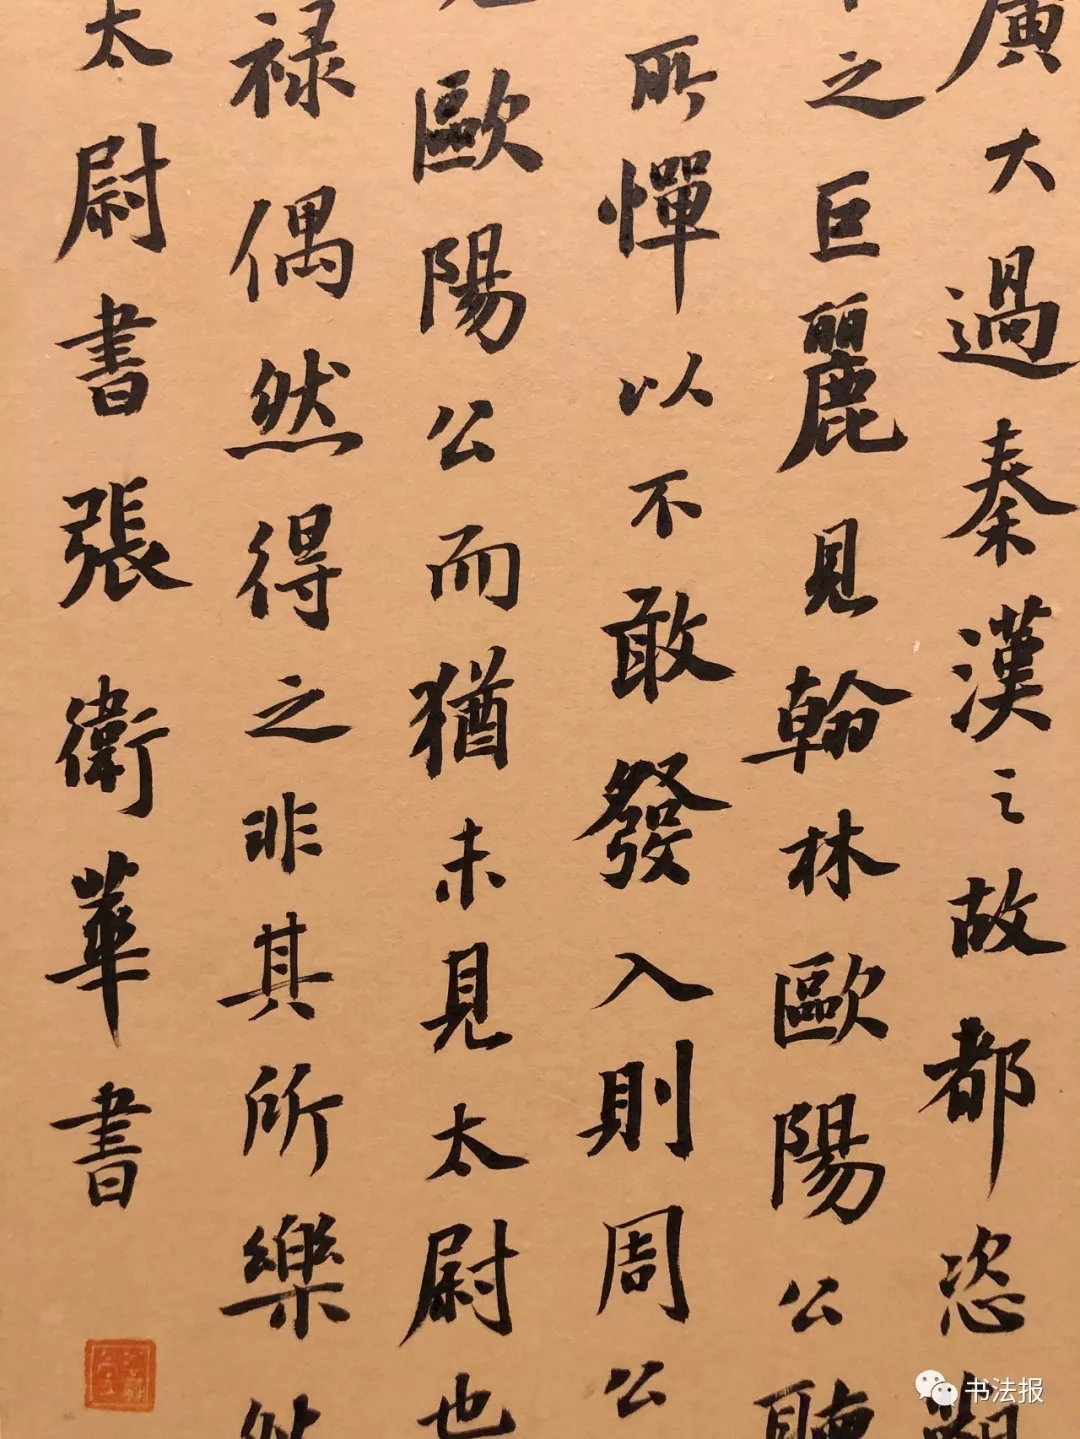 廣大過秦漢之故都恣
之巨麗見翰林歐陽公聽
所憚以不敢發入則周公
歐陽公而猶未見太尉也
禄偶然得之非其所樂然
太尉書張衛華書
书法报